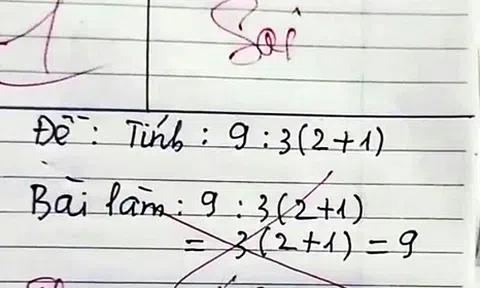 1
Sai
Đề: Tính: 9:3(2+1)
Bài làm: 9:3(2+1)
= 3(2+1) = 9